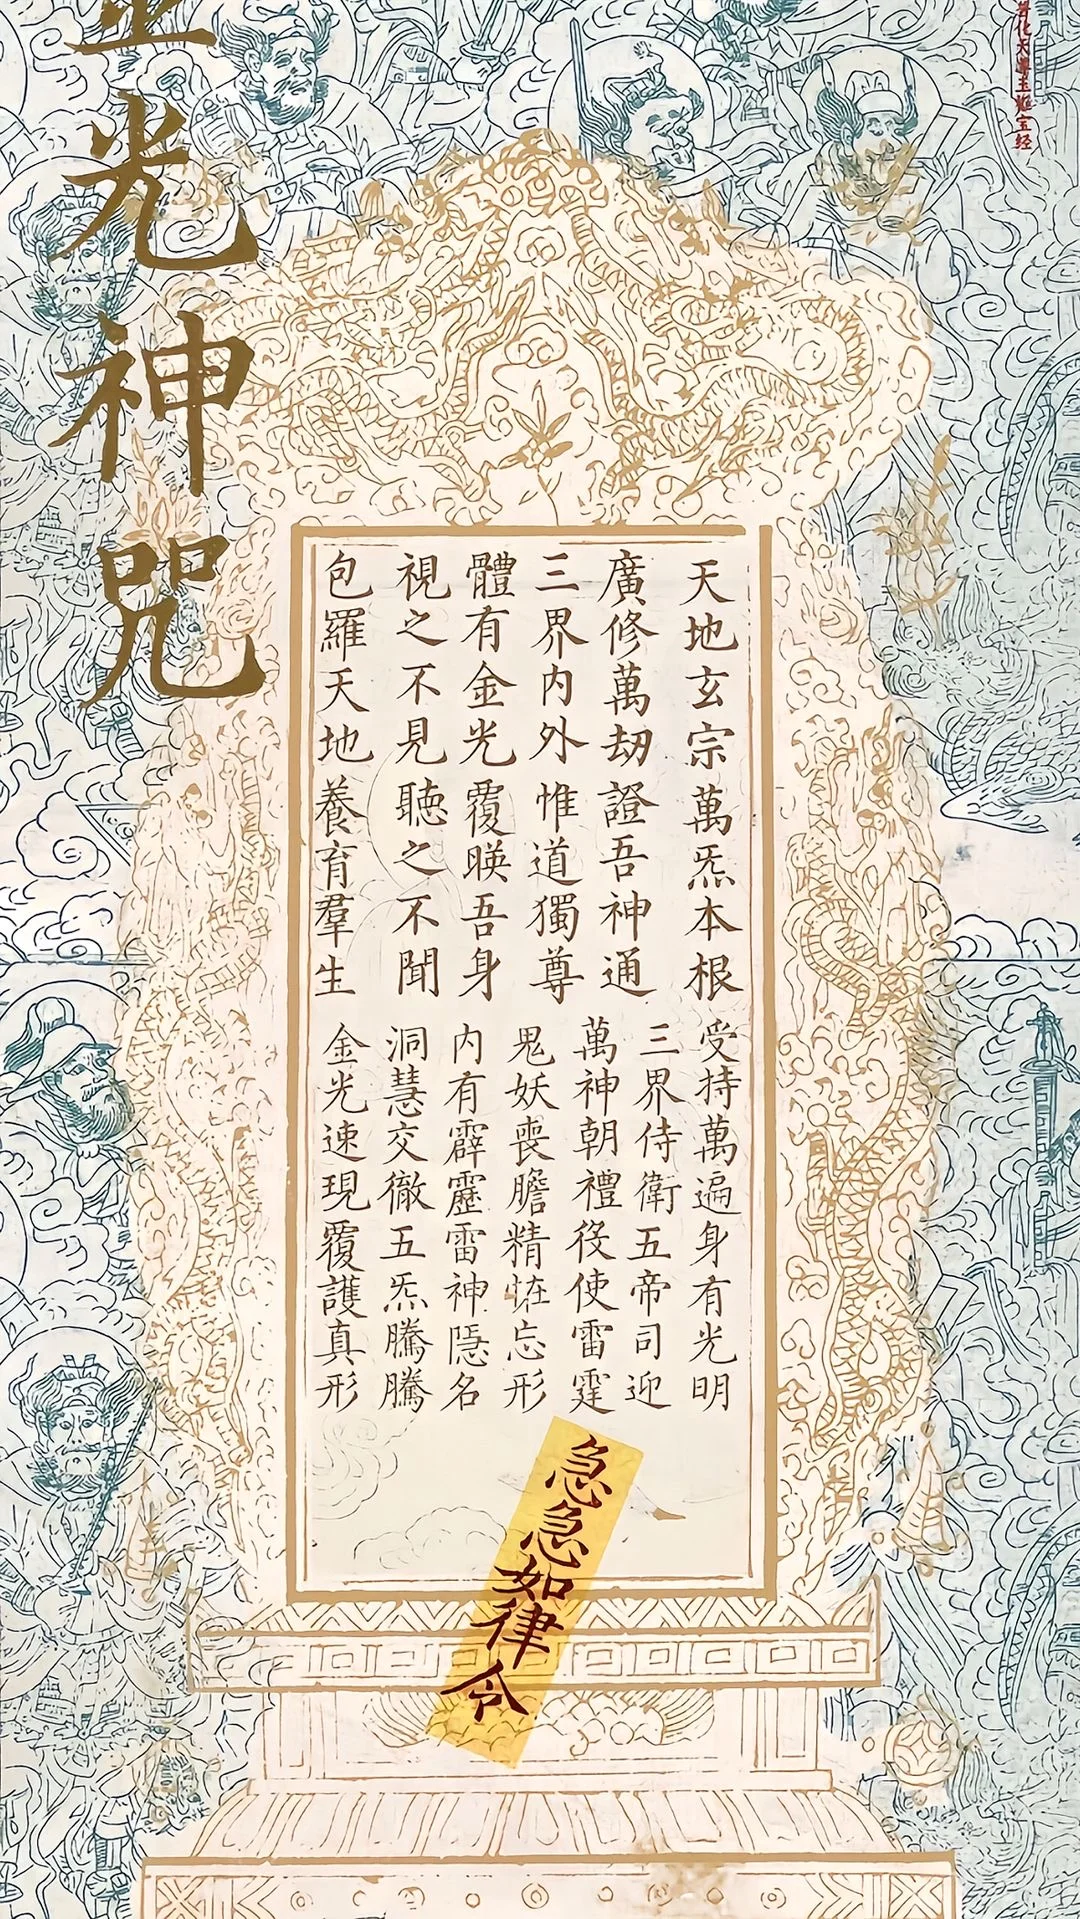 天地玄宗萬炁本根
廣修萬劫證吾神通
三界内外惟道獨尊
體有金光覆暎吾身
視之不見聽之不聞
包羅天地養育羣生
受持萬遍身有光明
三界侍衛五帝司迎
萬神朝禮役使雷霆
鬼妖喪膽精恠忘形
内有霹靂雷神隱名
洞慧交徹五炁騰騰
金光速現覆護真形
急急如律令
光神咒